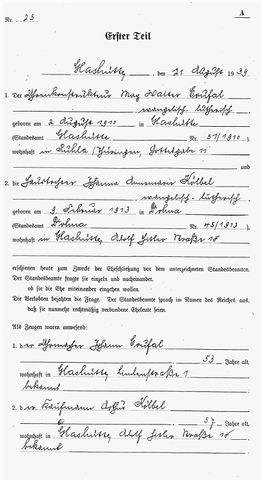 A
Nr. 25
Erster Teil
Glashütte, den 21 August 1939
1. Der Uhrenkonstrukteur Max Walter
evangelisch-lutherisch
geboren am 2 August 1910 in Glashütte
(Standesamt Glashütte Nr. 51/1910)
wohnhaft in Ruhla/Thüringen, 11
2. die Haustochter Johanna Kölbel
evangelisch-lutherisch
geboren am 9 Februar 1913 in Dohna
(Standesamt Dohna Nr. 45/1913)
wohnhaft in Glashütte, Adolf Hitler Straße 18
erschienen heute zum Zwecke der Eheschließung vor dem unterzeichneten Standesbeamten.
Der Standesbeamte fragte sie einzeln und nacheinander,
ob sie die Ehe miteinander eingehen wollen.
Die Verlobten bejahten die Frage. Der Standesbeamte sprach im Namen des Reiches aus,
daß sie nunmehr rechtmäßig verbundene Eheleute seien.
Als Zeugen waren anwesend:
1. der Uhrmacher Johann
53 Jahre alt,
wohnhaft in Glashütte, Lindenstraße 1
bekannt
2. der Kaufmann Arthur Kölbel
57 Jahre alt,
wohnhaft in Glashütte, Adolf Hitler Straße 18
bekannt